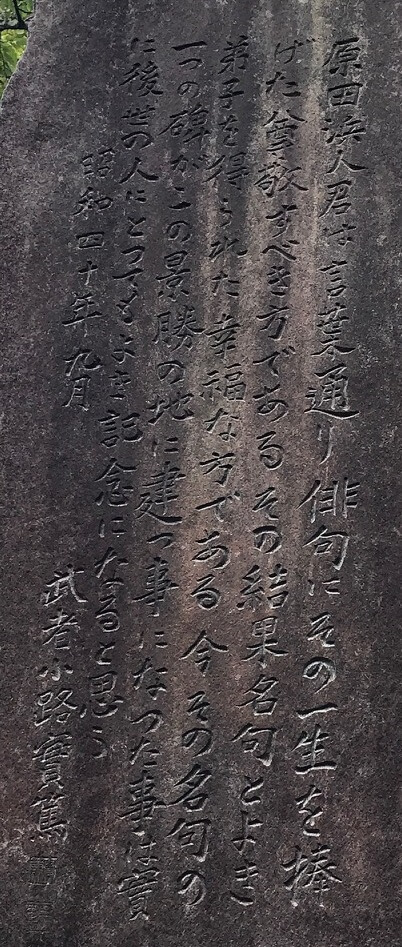 原田浜人君は言葉通り俳句にその一生を捧
げた尊敬すべき方であるその結果名句とよき
弟子を得られた幸福な方である今その名句の
一つの碑がこの景勝の地に建つ事になつた事は實
に後世の人にとつてもよき記念になると思う
昭和四十年九月
武者小路實篤